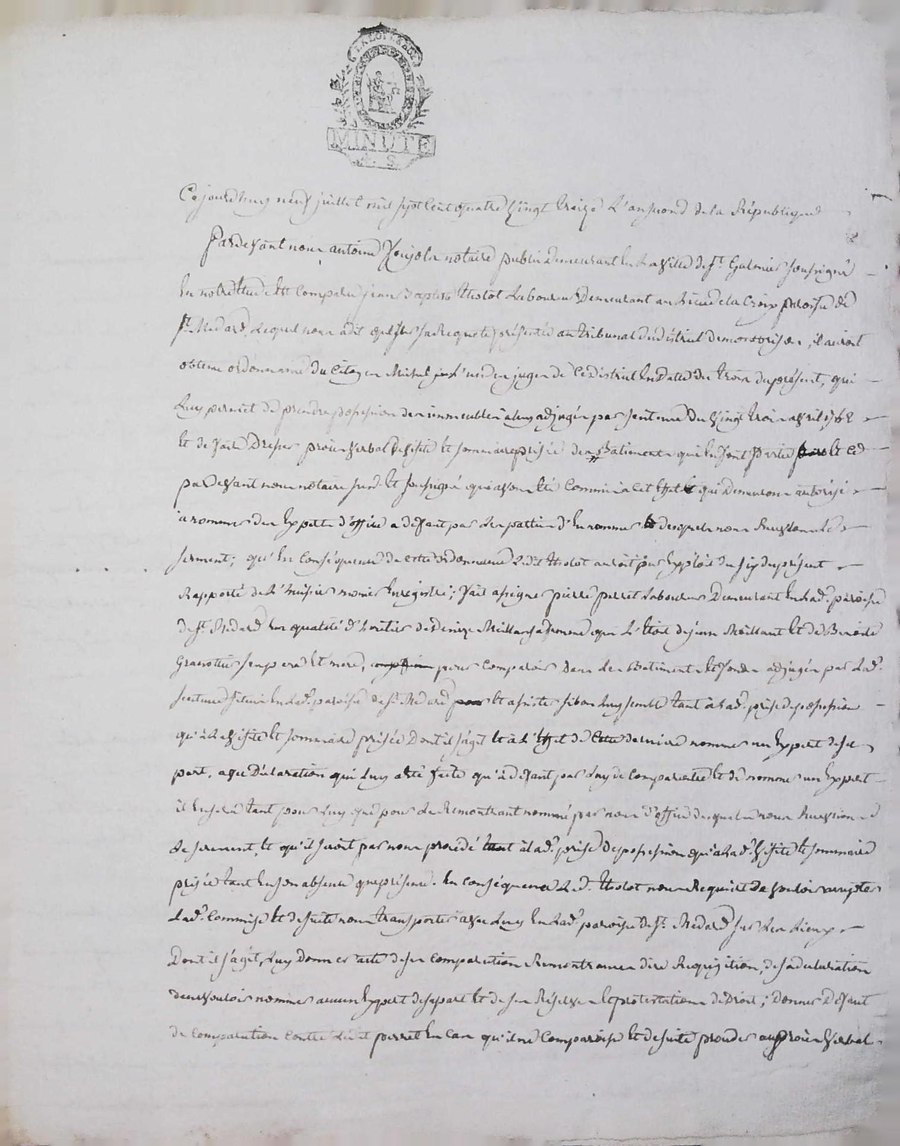 LA LOI LE ROI
MINUTE
4. S.
Cejourdhuy neuf juillet mil sept cent quatre vingt treize L'an second de la République
Pardevant nous antoine notaire public demeurant en la ville de St. Galmier soussigné
En notre étude Est Comparu jean Baptiste thiolot Laboureur Demeurant au lieu de la Croix paroisse de
St. Médard Lequel nous a dit que sur sa Requete présentée au tribunal du district de montbrison, il auroit
obtenu ordonnance du Citoyen Michel L'un des juges de Ce district En datte du trois du présent, qui
Luy permet de prendre possession des immeubles a luy adjugés par sentence du vingt trois avril 1768
Et de faire Dresser procès verbal de visite Et sommaire prisée des Batiments qui En font partie Et ce
pardevant nous notaire susd. Et soussigné qui avons été Commis a Cet Effet Et qui Demeurons autorisé
a nommer des Experts d'office a deffaut par les parties d'En nommer desquels nous Recevrons le
serment; qu'En Conséquence de cette ordonnance L.dit thiolot auroit par Exploit du six du présent
Rapporté de L'huissier Enregistré; fait assigner pierre perret Laboureur Demeurant En lad. paroisse
de St. Médard En qualité d'héritier de Denize Meilland femme que L'étoit de jean Meilland Et de Benoite
ses pere Et mere, pour Comparoir dans les Batiments Et fonds adjugés par lad.
sentence situés En lad. paroisse de St. Médard Et assister si bon luy semble tant à lad. prise de possession
qu'à la visite Et sommaire prisée Dont il s'agit Et à L'Effet de Cette derniere nommer un Expert de sa
part, avec Déclaration qui Luy a été faite qu'à deffaut par Luy de Comparoitre Et de nommer un Expert
il En sera tant pour Luy que pour le Remontrant nommé par nous d'office desquels nous Recevrions
le serment, Et qu'il seroit par nous procédé tant à lad. prise de possession qu'à lad. visite Et sommaire
prisée tant En son absence que présence. En Conséquence L.D. thiolot nous Requiert de vouloir accepter
lad. Commission Et de suite nous transporter avec Luy En lad. paroisse de St. Médard sur les Lieux
Dont il s'agit, Luy donner acte de sa Comparution Remontrances dire Requisition, de sa déclaration
de ne vouloir nommer aucun Expert de sa part Et de ses Réserves Et protestations de Droit; Donner Deffaut
de Comparution Contre Ledit perret En Cas qu'il ne Comparoisse Et de suite proceder au procès verbal